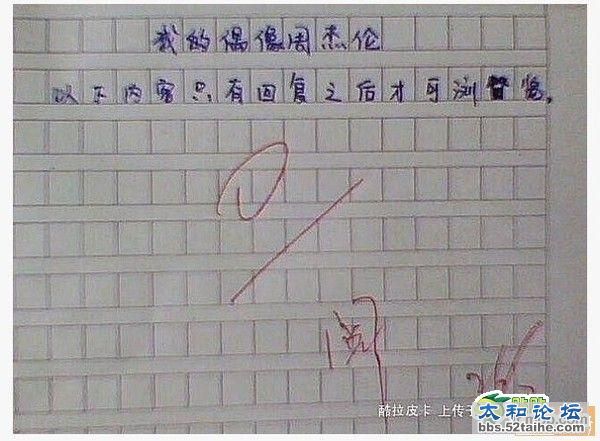 我的偶像周杰伦
以下内容只有回复之后才可浏览。
0
阅
酷拉皮卡 上传于
太和论坛
bbs.52taihe.com